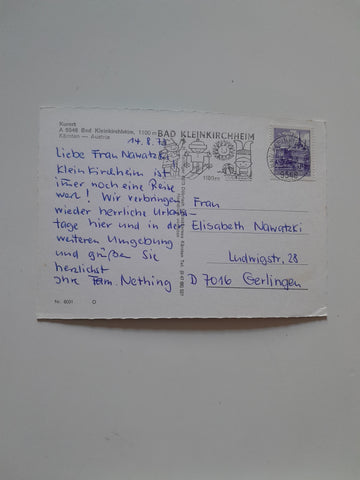 Kurort
A 9546 Bad Kleinkirchheim, 1100 m
Kärnten — Austria
14.8.73
BAD KLEINKIRCHHEIM
1100m
Liebe Frau Nawatzki!
Kleinkirchheim ist
immer noch eine Reise
wert! Wir verbringen
wieder herrliche Urlaubs-
tage hier und in der
weiteren Umgebung
und grüßen Sie
herzlichst
Ihre Fam. Nething
Frau
Elisabeth Nawatzki
Ludwigstr. 28
D 7016 Gerlingen
Nr. 6091 D